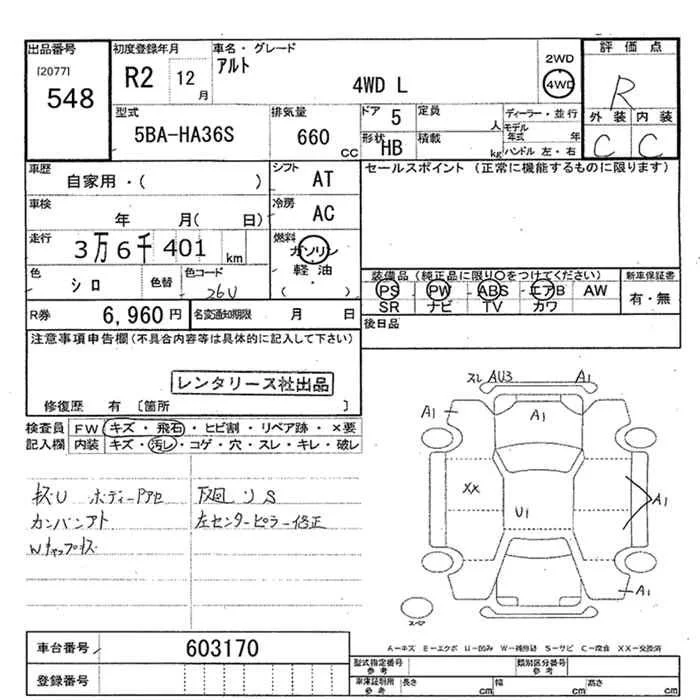 出品番号 初度登録年月 車名・グレード 2WD 評価点
[2077] 548 R2 12月 アルト 4WD L 4WD R
型式 排気量 ドア 5 定員 人 ディーラー・並行 外装 内装
5BA-HA36S 660 CC 形状 HB 積載 kg モデル年式 年 ハンドル 左・右 C C
車歴 シフト セールスポイント (正常に機能するものに限ります)
自家用・( ) AT
車検 年 月( 日) 冷房 AC
走行 3万6千401 km 燃料 ガソリン
軽油
色 シロ 色替 色コード 26U ( ・ ) 装備品 (純正品に限り○をつけてください) 新車保証書
PS PW ABS エアB AW 有・無
SR ナビ TV カワ
R券 6,960円 名変通知期限 月 日 後日品
注意事項申告欄(不具合内容等は具体的に記入して下さい)
レンタリース社出品
修復歴 有 〔箇所 〕
検査員 FW キズ・飛石・ヒビ割・リペア跡・×要
記入欄 内装 キズ・汚レ・コゲ・穴・スレ・キレ・破レ
スレ AU3 A1
A1 A1
XX U1 A1
A1
ボディーPアセ
カンバンアト 左センターピラー修正
スペア
A-キズ E-エクボ U-凹み W-補修跡 S-サビ C-腐食 XX-交換済
車台番号 603170
登録番号
型式指定番号 参考 類別区分番号 参考
車庫証明用 参考 長さ cm 幅 cm 高さ cm